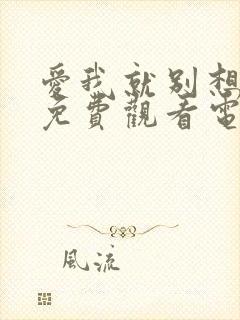 愛我就別想
免費觀看電
風流